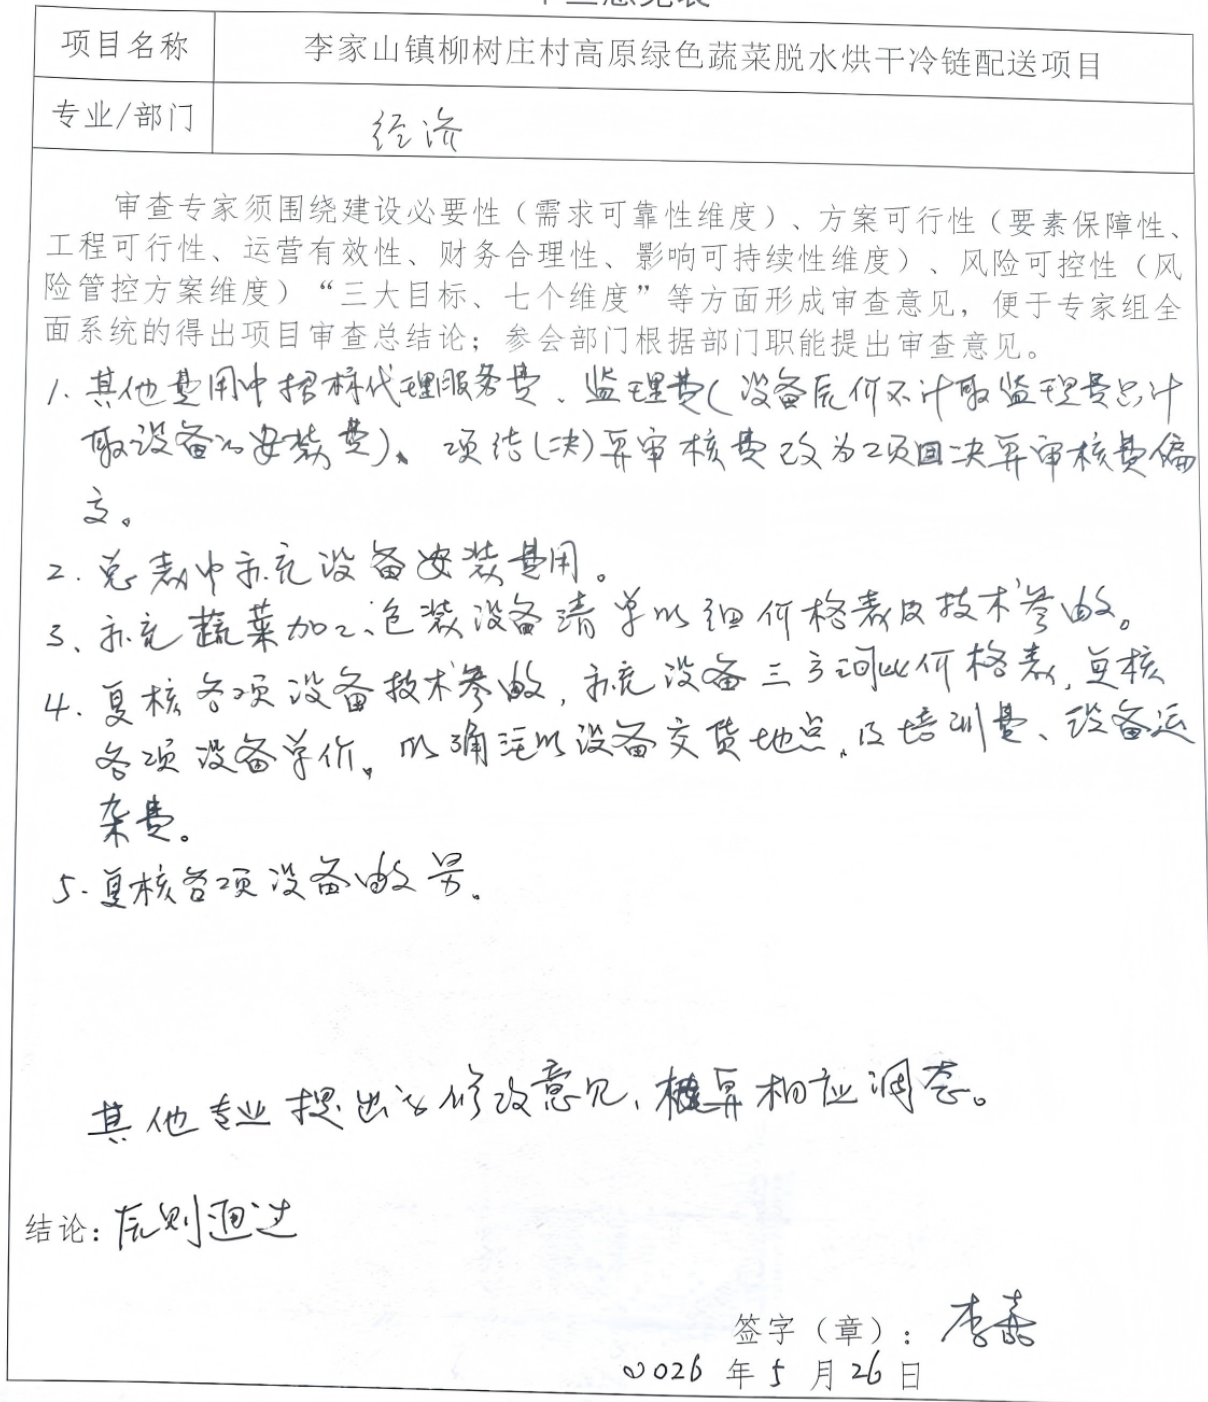 审查意见表
项目名称 李家山镇柳树庄村高原绿色蔬菜脱水烘干冷链配送项目
专业/部门 经济
审查专家须围绕建设必要性（需求可靠性维度）、方案可行性（要素保障性、
工程可行性、运营有效性、财务合理性、影响可持续性维度）、风险可控性（风
险管控方案维度）“三大目标、七个维度”等方面形成审查意见，便于专家组全
面系统的得出项目审查总结论；参会部门根据部门职能提出审查意见。
1. 其他费用中招标代理服务费、监理费（设备原价不计取监理费只计
取设备的安装费）、项结(决)算审核费改为项目决算审核费偏
高。
2. 总表中补充设备安装费用。
3、补充蔬菜加工、包装设备清单明细价格表及技术参数。
4. 复核各项设备技术参数，补充设备三方询比价格表，复核
各项设备单价，明确设备交货地点，及培训费、设备运
杂费。
5. 复核各项设备数量。
其他专业提出的修改意见，概算相应调整。
结论：原则通过
签字（章）：李
2026 年 5 月 26 日